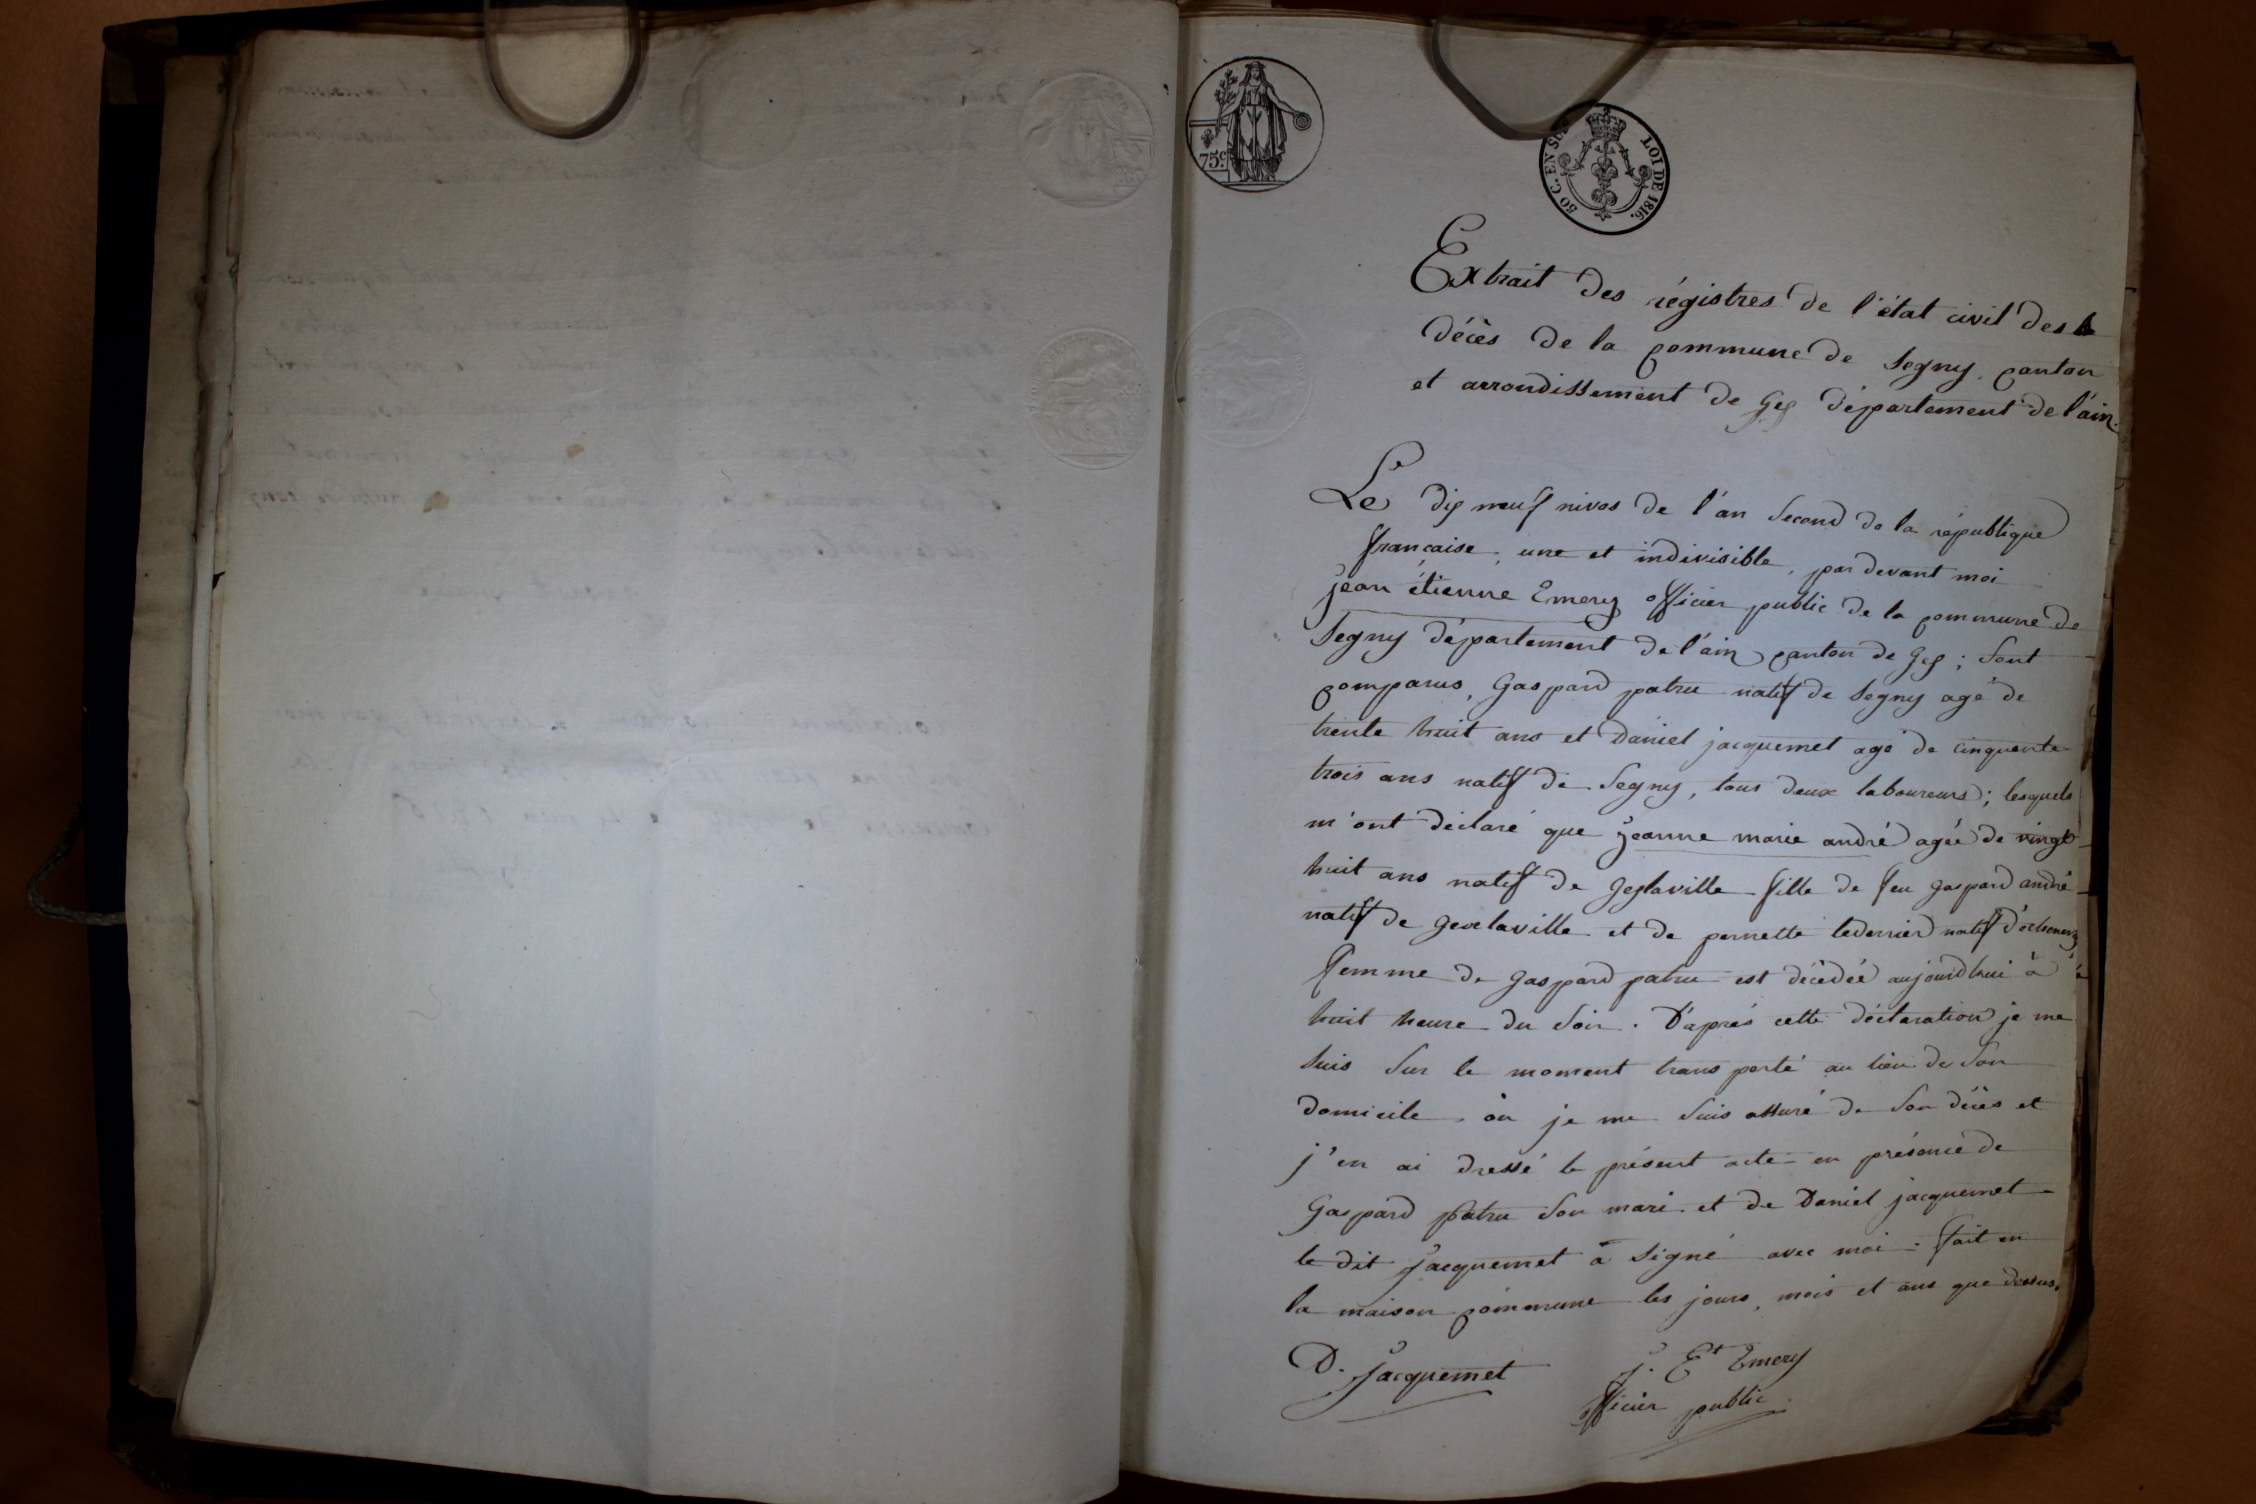 75c.
50 C. EN SUS
LOI DE 1816.
Extrait des régistres de l'état civil des
décès de la commune de Segny. canton
et arrondissement de Gex département de l'ain.
Le dix neuf nivos de l'an second de la république
française, une et indivisible, par devant moi
jean étienne Emery officier public de la commune de
Segny département de l'ain canton de Gex ; sont
comparus, Gaspard patru natif de Segny agé de
trente huit ans et Daniel jacquemet agé de cinquante
trois ans natif de Segny, tous deux laboureurs ; lesquels
m'ont déclaré que jeanne marie andré agée de vingt
huit ans natif de Gexlaville fille de feu gaspard andré
natif de gexlaville et de pernette natif
femme de gaspard patru est décédée aujourd'hui à
huit heure du soir. D'aprés cette déclaration je me
suis sur le moment transporté au lieu de son
domicile, où je me suis assuré de son décès et
j'en ai dressé le présent acte en présence de
Gaspard patru son mari et de Daniel jacquemet
le dit jacquemet à signé avec moi. fait en
la maison commune les jours, mois et ans que dessus.
D. Jacquemet
J. Et Emery
officier public